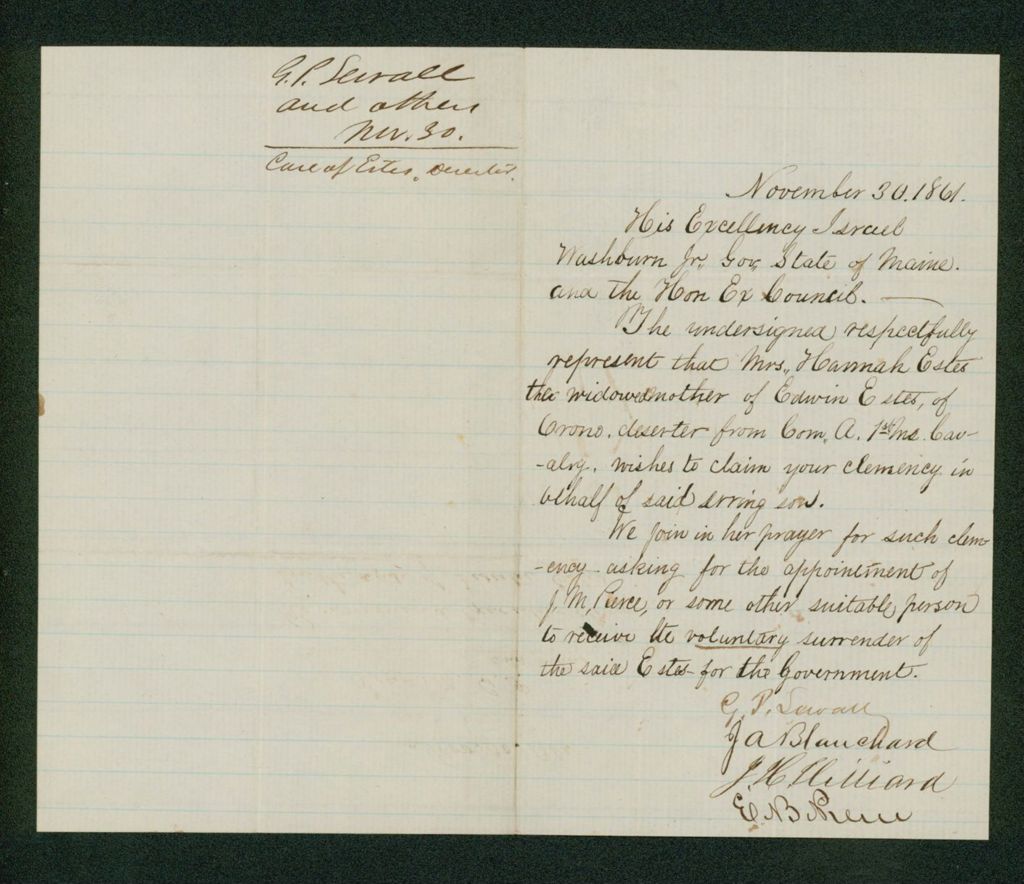 G. P. Sewall
and others
Nov. 30.
Case of Estes, Deserter.
November 30, 1861.
His Excellency Israel
Washburn Jr, Gov, State of Maine.
and the Hon Ex Council. —
The undersigned respectfully
represent that Mrs, Hannah Estes
the widowed mother of Edwin Estes, of
Orono, deserter from Com, A. 1st Me. Cav-
-alry, wishes to claim your clemency in
behalf of said erring son.
We join in her prayer for such clem-
-ency asking for the appointment of
J. M, Pierce, or some other suitable, person
to receive the voluntary surrender of
the said Estes for the Government.
G. P. Sewall
J A Blanchard
J. H. Hilliard
E. B. Pierce